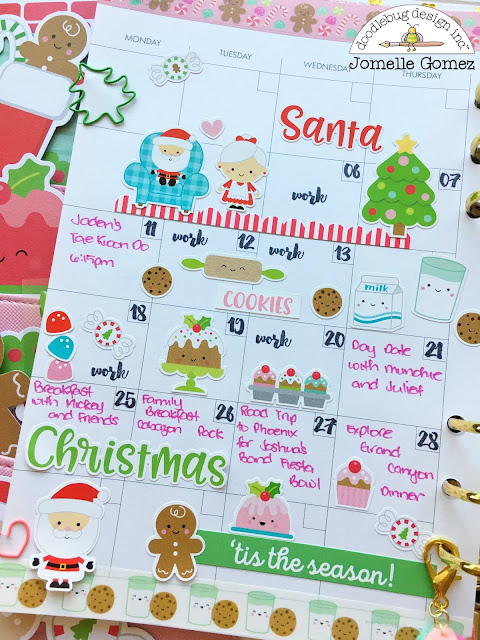 doodlebug design inc.
Jomelle Gomez
MONDAY
TUESDAY
WEDNESDAY
THURSDAY
Santa
06
07
work
11
12
13
Jaden's
Tae Kwon Do
6:15pm
work
work
milk
COOKIES
18
19
20
21
work
work
Day Date
with munchie
and Juliet
25
26
27
28
Breakfast
with Mickey
and Friends
Family
Breakfast
Pack
Road Trip
to Phoenix
for Joshua's
Band Fiesta
Bowl
Explore
Grand
Canyon
Dinner
Christmas
'tis the season!